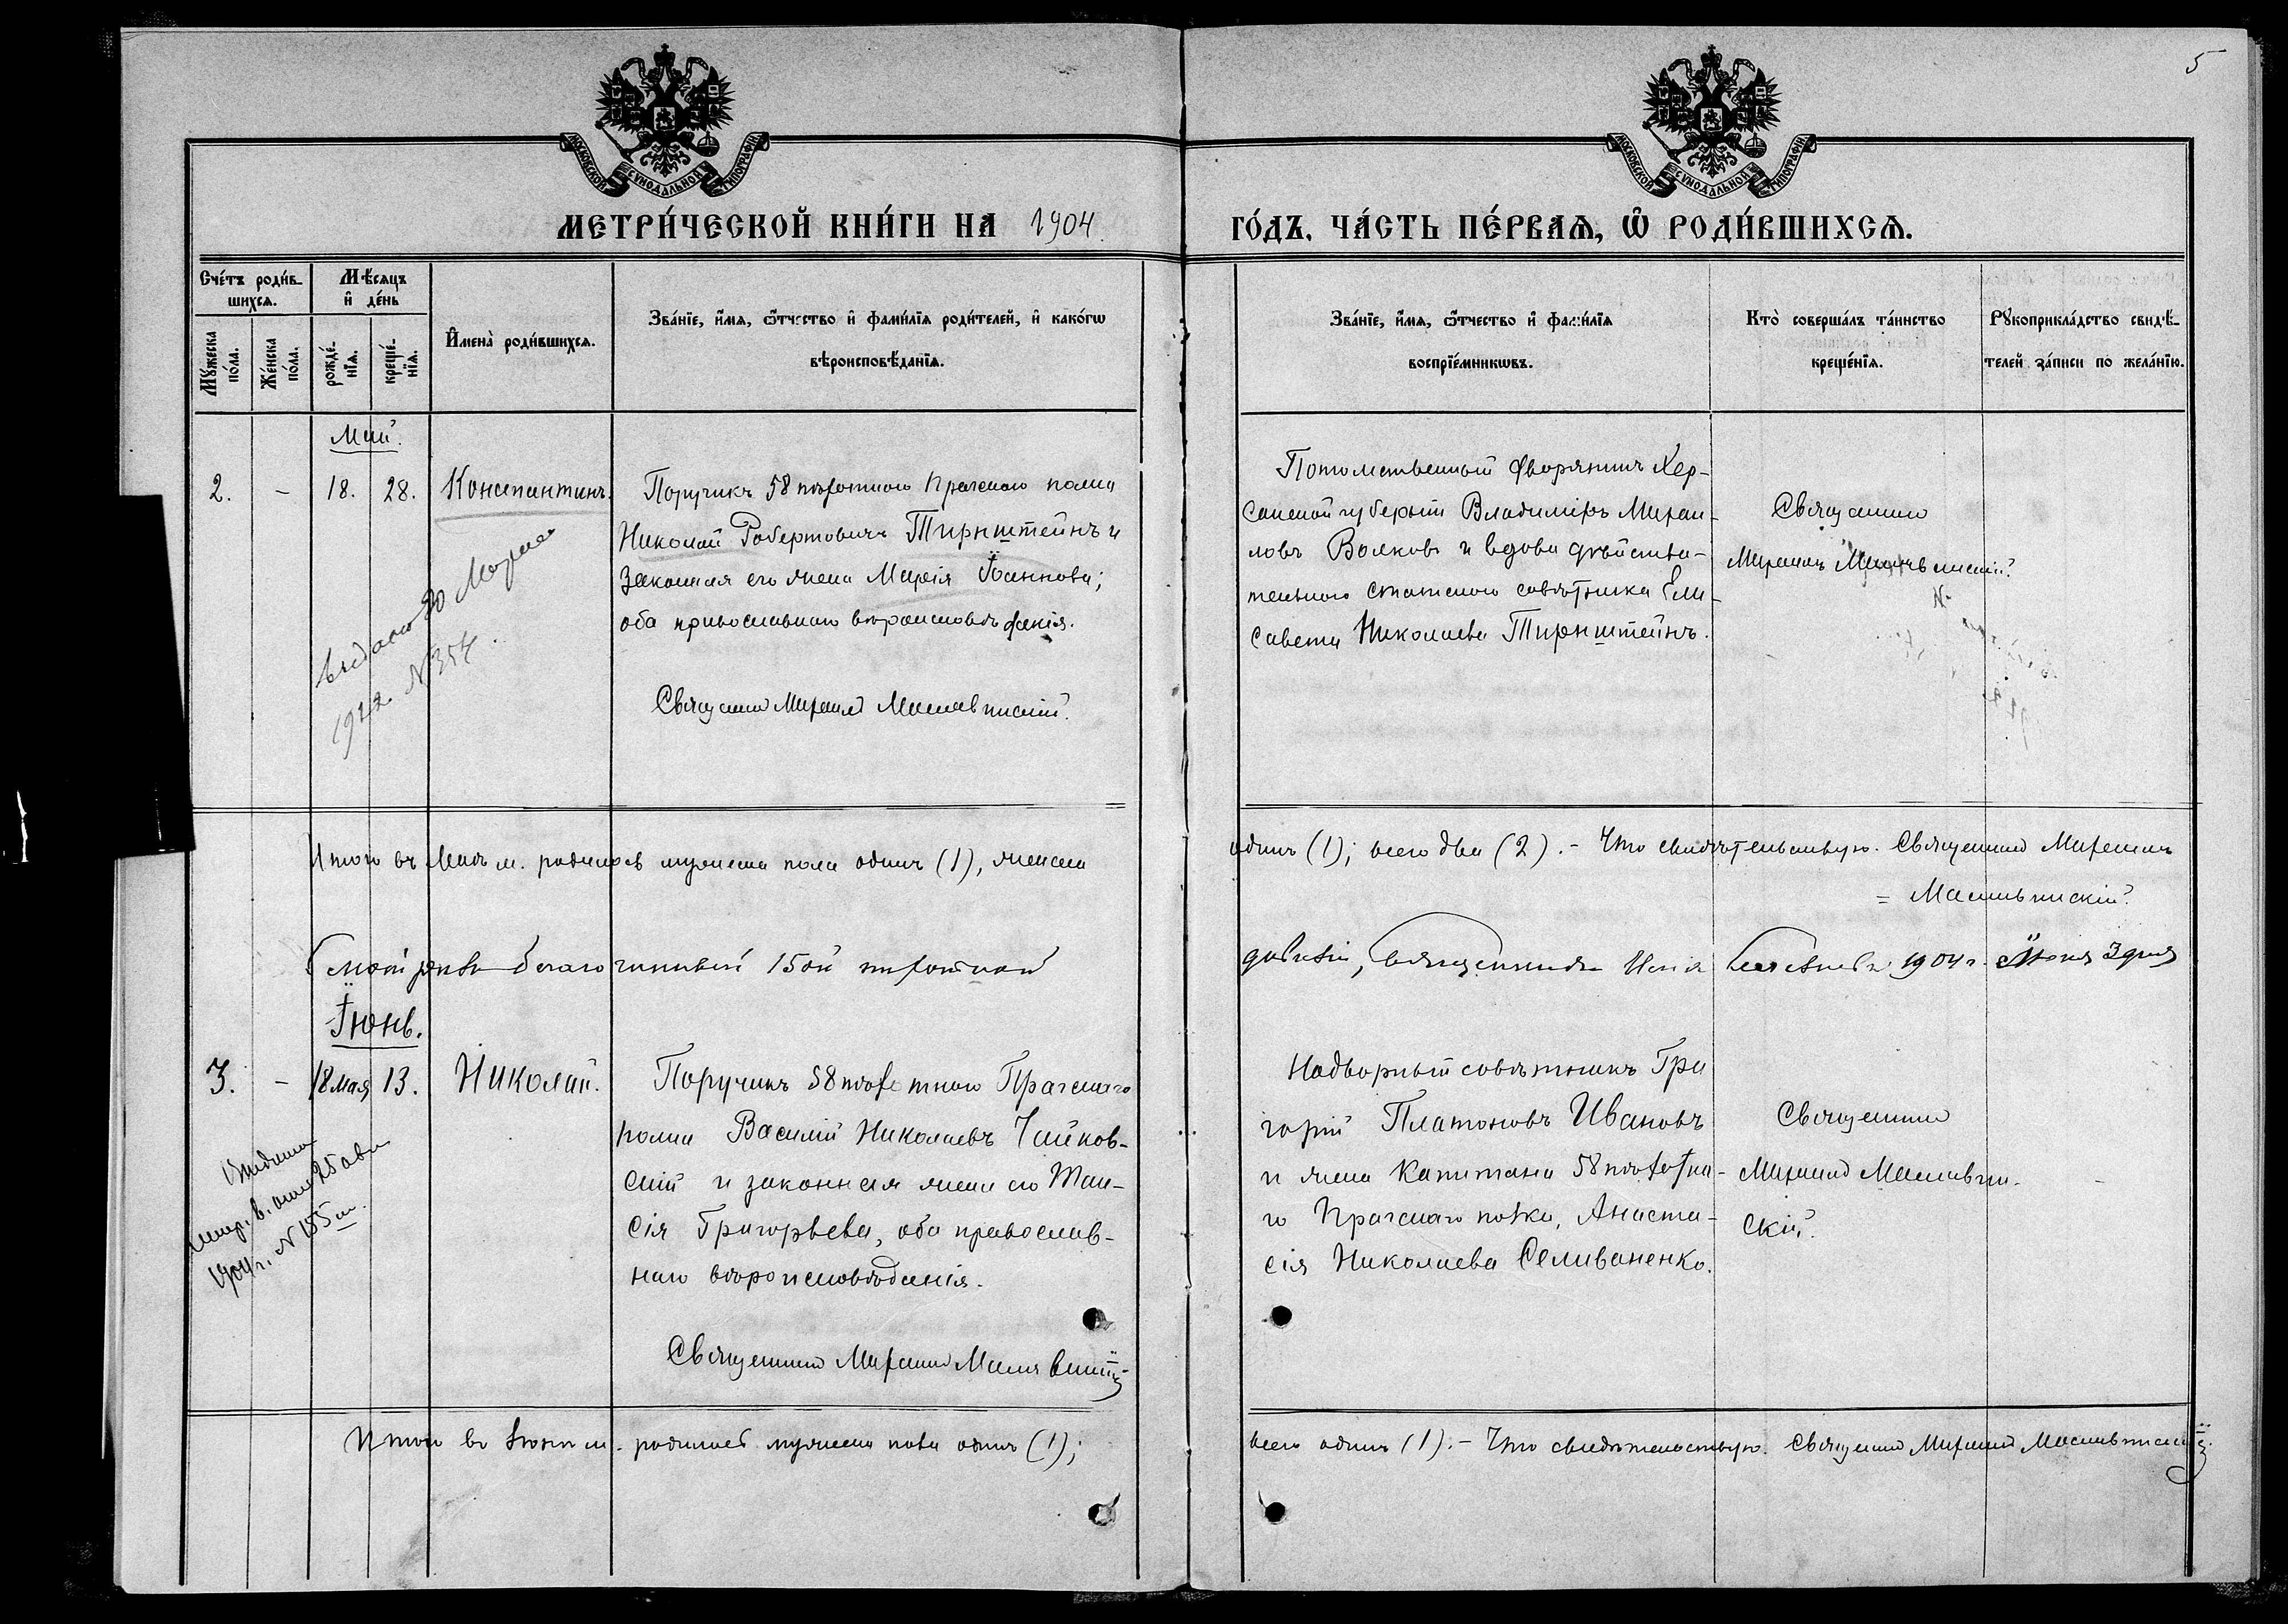 5
МОСКОВСКОЙ СѴНОДАЛЬНОЙ ТИПОГРАФІИ
МОСКОВСКОЙ СѴНОДАЛЬНОЙ ТИПОГРАФІИ
МЕТРИ́ЧЕСКОЙ КНИ́ГИ НА 1904
ГО́ДЪ, ЧА́СТЬ ПЕ́РВАѦ, Ѿ РОДИ́ВШИХСѦ.
Сче́тъ роди́в-
шихсѧ.
Мꙋ́жеска
по́ла.
Же́нска
по́ла.
Мѣ́сѧцъ
и҆ де́нь
рожде́-
нїѧ.
креще́-
нїѧ.
И҆мена̀ роди́вшихсѧ.
Зва́нїе, и҆́мѧ, ѻ҆́тчество и҆ фами́лїѧ роди́телей, и҆ како́гѡ
вѣроисповѣ́данїѧ.
Зва́нїе, и҆́мѧ, ѻ҆́тчество и҆ фами́лїѧ
воспрїе́мникѡвъ.
Кто̀ соверша́лъ та́инство
креще́нїѧ.
Рꙋкоприкла́дство свидѣ́-
телей за́писи по жела́нїю.
Май.
2. - 18. 28. Константинъ.
Поручикъ 58 пѣхотнаго Прагскаго полка
Николай Робертовичъ Тирнштейнъ и
законная его жена Марія Іоаннова;
оба православнаго вѣроисповѣданія.
Священникъ Михаилъ
выдано 30 Марта
1922 N 354.
Потомственный дворянинъ Хер-
сонской губерніи Владиміръ Михаи-
ловъ Волковъ и вдова дѣйстви-
тельнаго статскаго совѣтника Ели-
савета Николаева Тирнштейнъ.
Священникъ
Михаилъ
Итого въ Маѣ м. родилось мужеска пола одинъ (1), женска
одинъ (1); всего два (2). - Что свидѣтельствую. Священникъ Михаилъ
благочинный 15ой пѣхотной
дивизіи, священникъ 1904 г. Іюня 3 дня
Іюнь.
3. - 18 мая 13. Николай.
Поручикъ 58 пѣхотнаго Прагскаго
полка Василій Николаевъ Чайков-
скій и законная жена его Таи-
сія Григорьева, оба православ-
наго вѣроисповѣданія.
Священникъ Михаилъ
25 авг.
1904 г. N 155
Надворный совѣтникъ Гри
горій Платоновъ Ивановъ
и жена капитана 58 пѣхотна-
го Прагскаго полка, Анаста-
сія Николаева Селиваненко.
Священникъ
Михаилъ
скій.
Итого въ Іюнѣ м. родилось мужеска пола одинъ (1);
всего одинъ (1). - Что свидѣтельствую. Священникъ Михаилъ